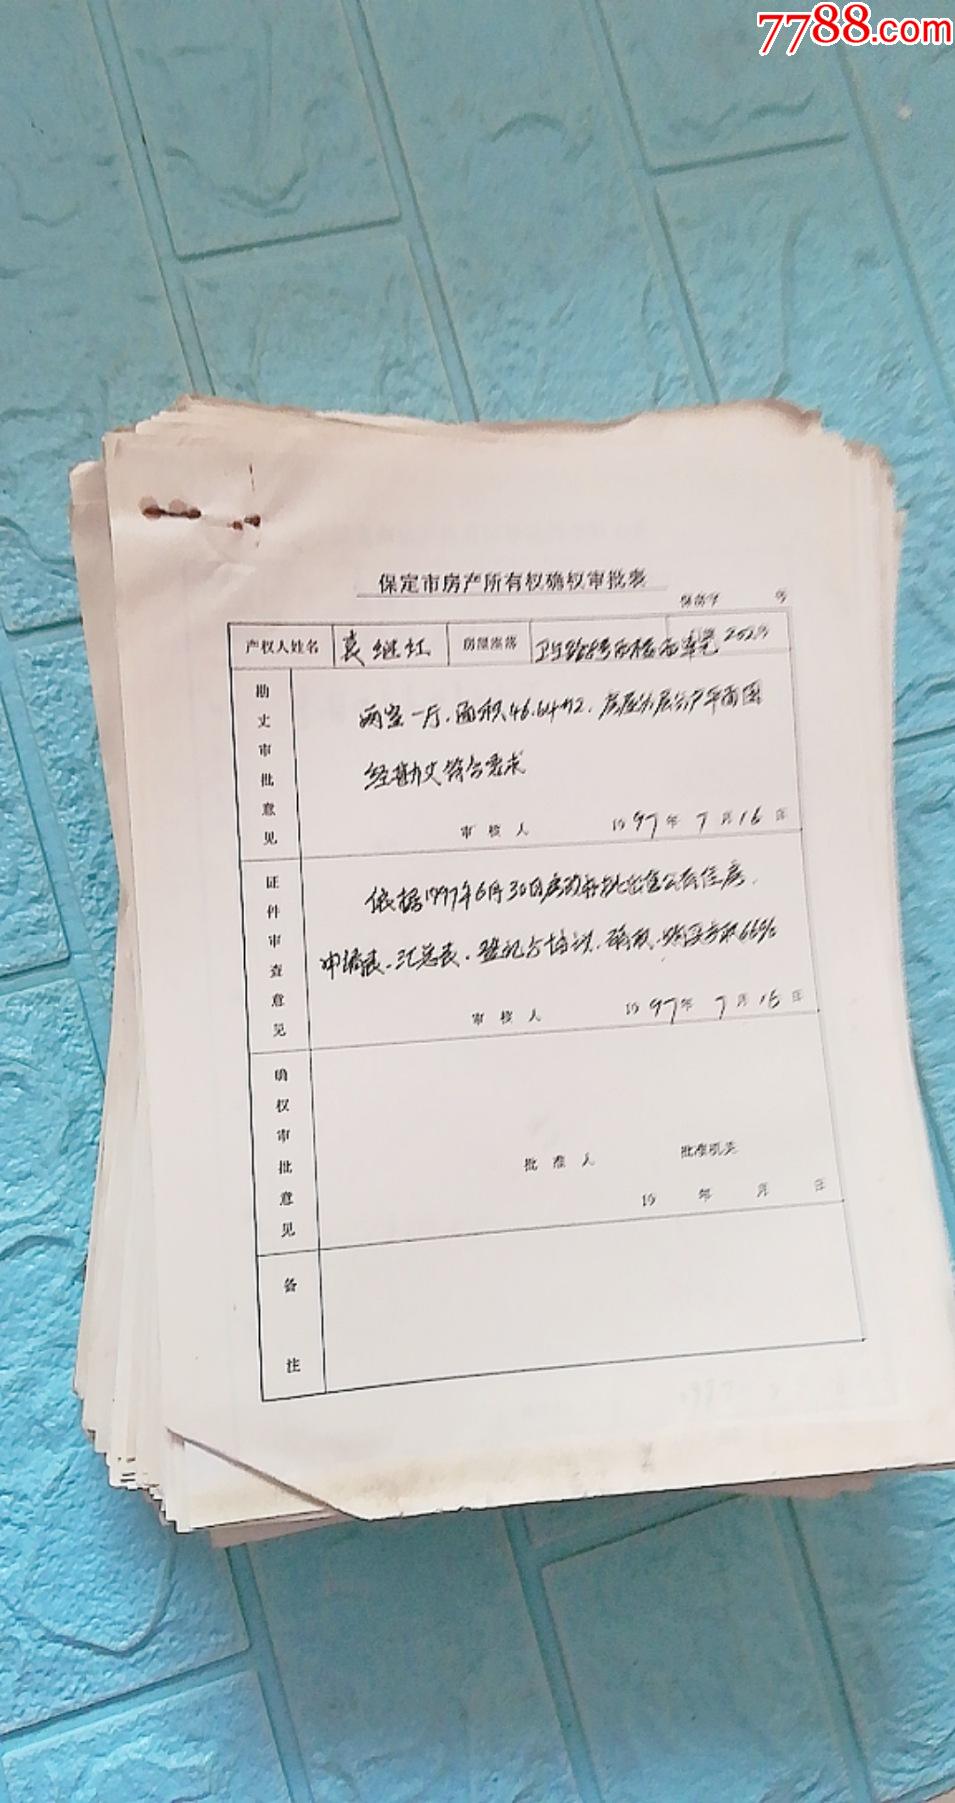 7788.com
保定市房产所有权确权审批表
保房字 号
产权人姓名 袁继红 房屋座落 卫生路 号 楼 单元 202号
勘丈审批意见
两室一厅.面积46.64m2.房屋分层分户平面图
经勘丈符合要求
审核人 1997年7月16日
证件审查意见
依据1997年6月30日房改 批出售公有住房
申请表.汇总表.登记 确权. 66%
审核人 1997年7月16日
确权审批意见
批准人 批准机关
19 年 月 日
备注